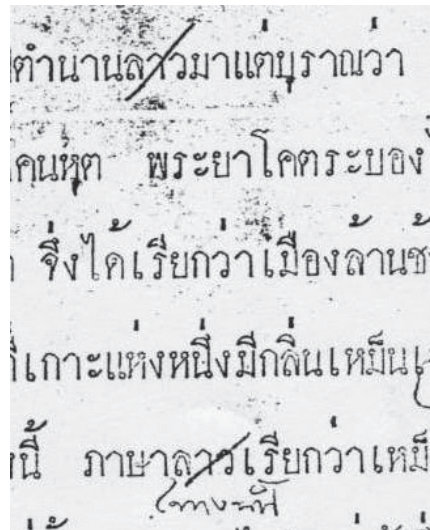 ตำนานลาวมาแต่บุราณว่า
คนหุต พระยาโคตระบอง
จึ่งได้เรียกว่าเมืองล้านช้
ที่เกาะแห่งหนึ่งมีกลิ่นเหม็น
นี้ ภาษาลาวเรียกว่าเหมื